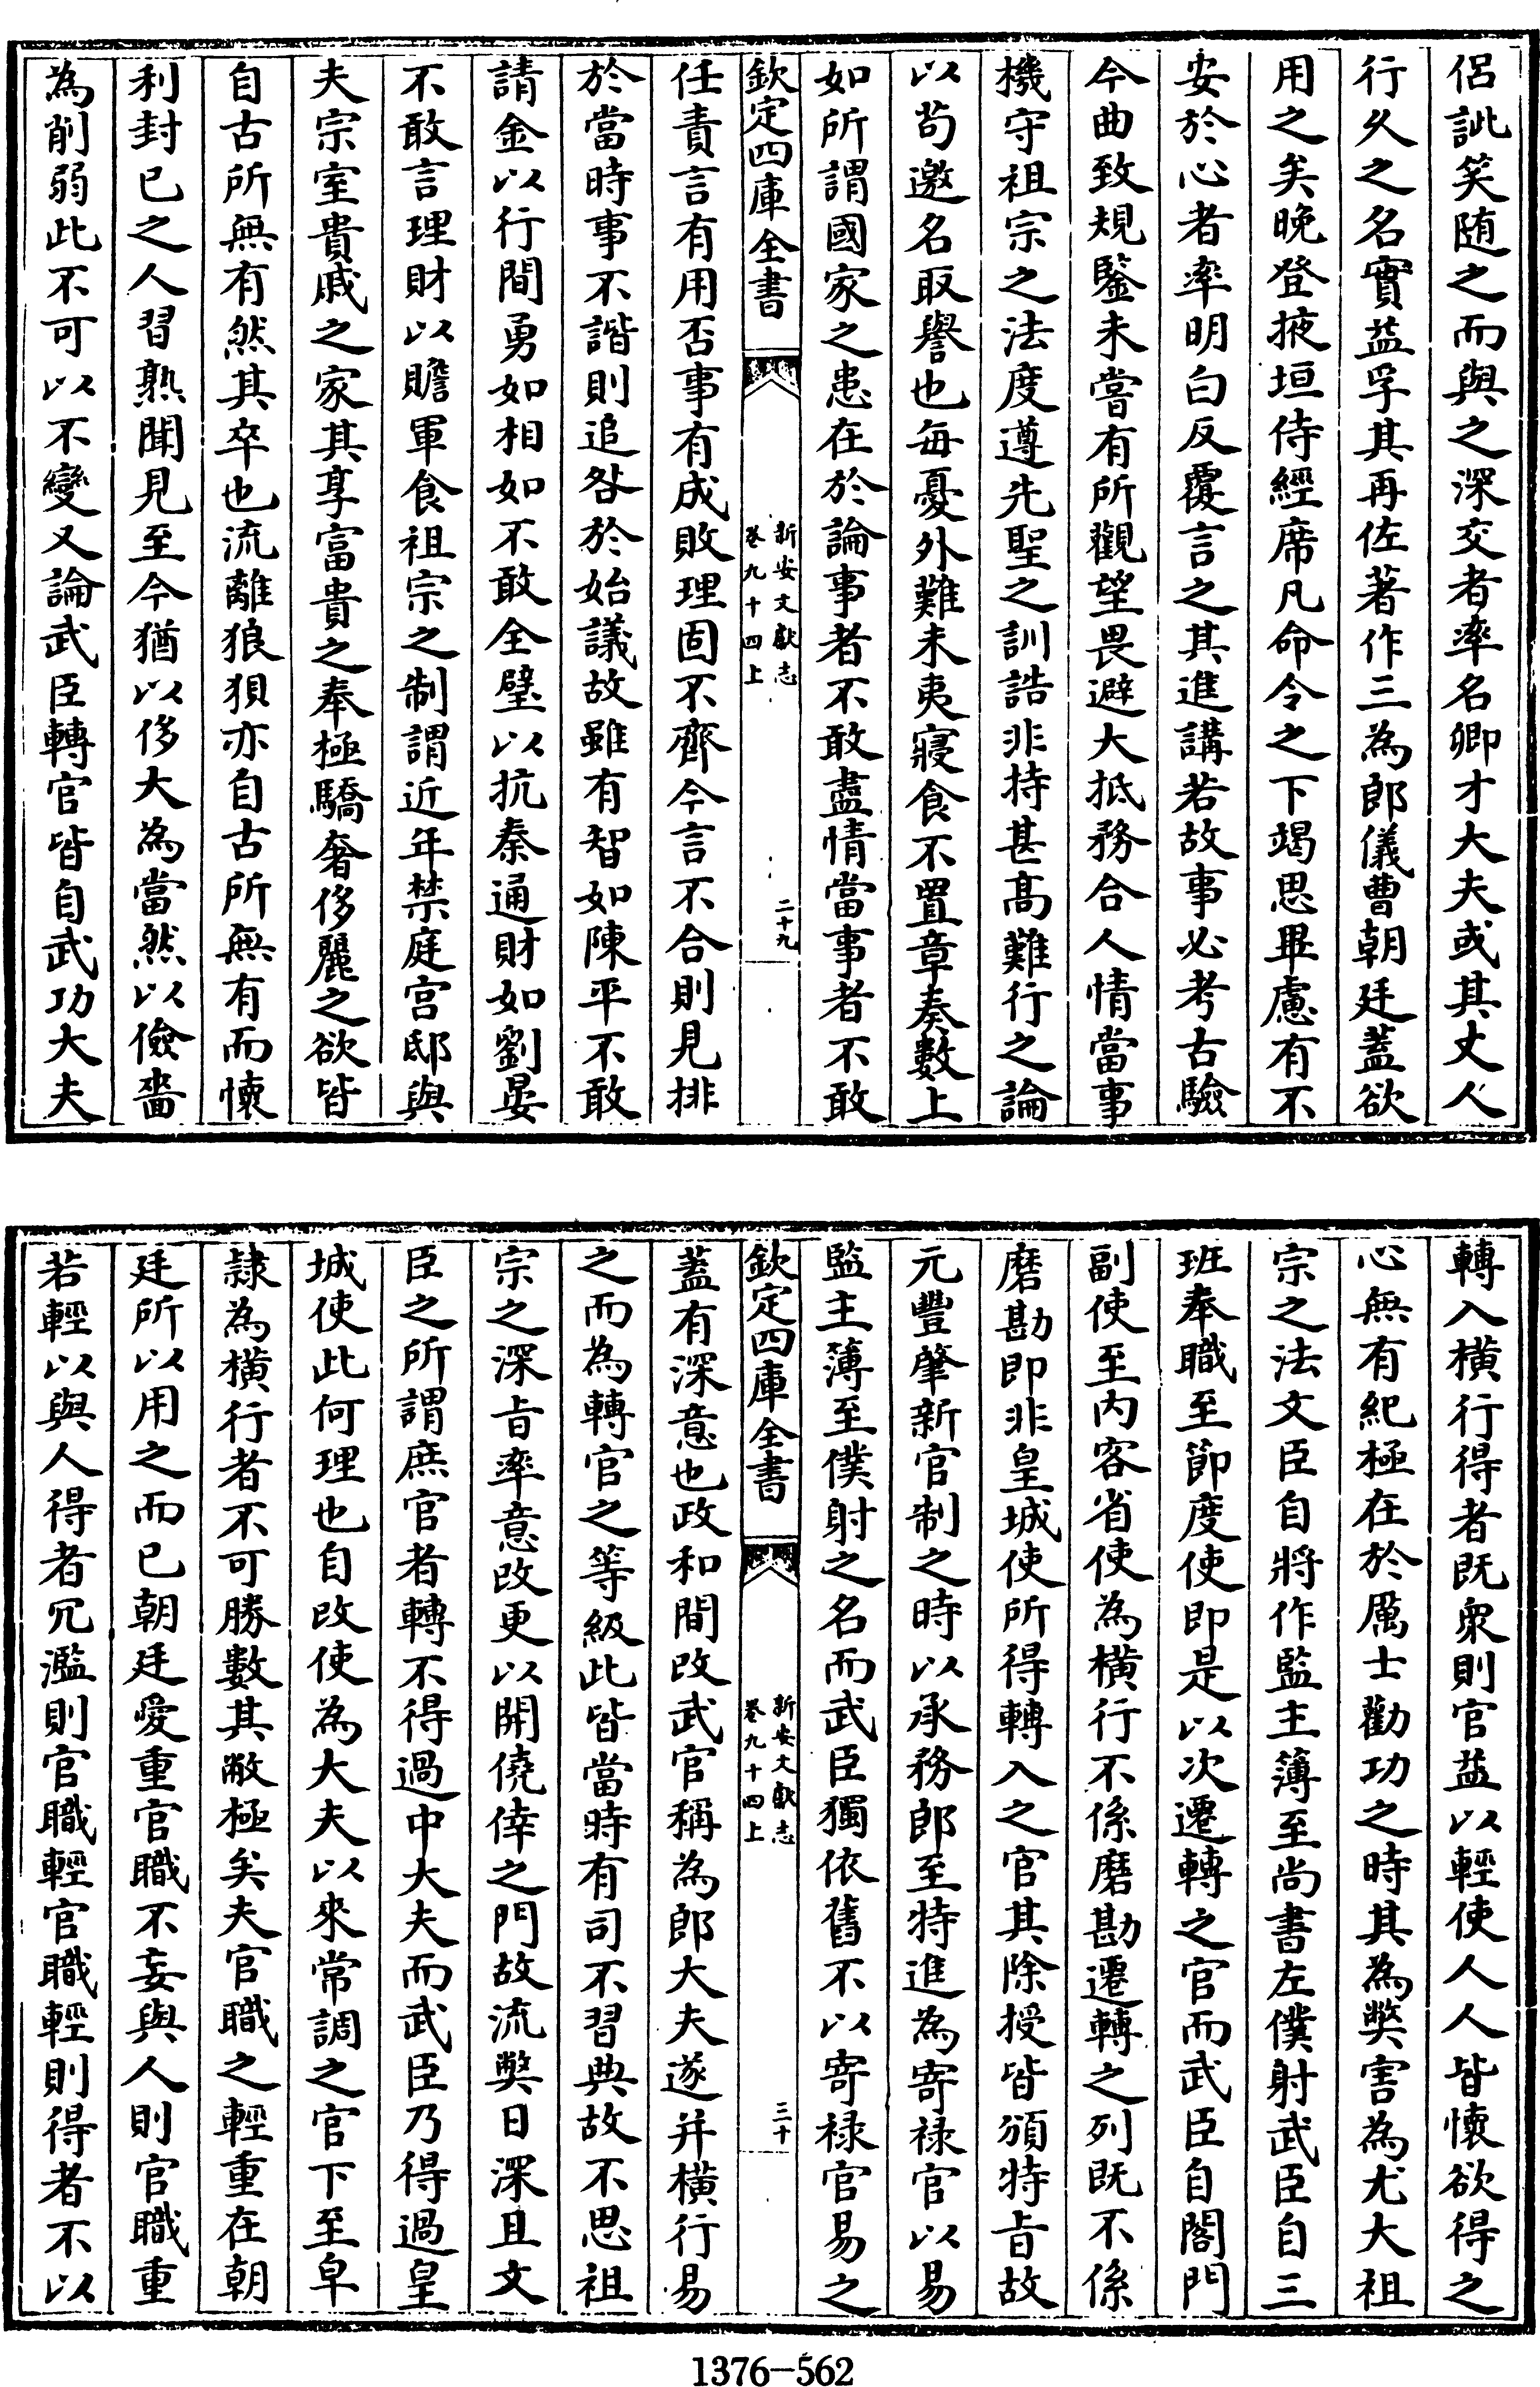 侣訿笑随之而與之深交者率名卿才大夫或其丈人
行久之名實益孚其再佐著作三為郎儀曹朝廷蓋欲
用之矣晚登掖垣侍經席凡命令之下竭思畢慮有不
安於心者率明白反覆言之其進講若故事必考古驗
今曲致規鑒未嘗有所觀望畏避大抵務合人情當事
機守祖宗之法度遵先聖之訓誥非持甚髙難行之論
以苟邀名取譽也每憂外難未夷寢食不置章奏數上
如所謂國家之患在於論事者不敢盡情當事者不敢
欽定四庫全書
新安文獻志
卷九十四上
二十九
任責言有用否事有成敗理固不齊今言不合則見排
於當時事不諧則追咎於始議故雖有智如陳平不敢
請金以行間勇如相如不敢全璧以抗秦通財如劉晏
不敢言理財以贍軍食祖宗之制謂近年禁庭宫邸與
夫宗室貴戚之家其享富貴之奉極驕奢侈麗之欲皆
自古所無有然其卒也流離狼狽亦自古所無有而懐
利封已之人習熟聞見至今猶以侈大為當然以儉嗇
為削弱此不可以不變又論武臣轉官皆自武功大夫
轉入横行得者既衆則官益以輕使人人皆懐欲得之
心無有紀極在於厲士勸功之時其為弊害為尤大祖
宗之法文臣自將作監主簿至尚書左僕射武臣自三
班奉職至節度使即是以次遷轉之官而武臣自閤門
副使至内客省使為横行不係磨勘遷轉之列既不係
磨勘即非皇城使所得轉入之官其除授皆頒特㫖故
元豐肇新官制之時以承務郎至特進為寄禄官以易
監主簿至僕射之名而武臣獨依舊不以寄禄官易之
欽定四庫全書
新安文獻志
卷九十四上
三十
蓋有深意也政和間改武官稱為郎大夫遂并横行易
之而為轉官之等級此皆當時有司不習典故不思祖
宗之深㫖率意改更以開僥倖之門故流弊日深且文
臣之所謂庶官者轉不得過中大夫而武臣乃得過皇
城使此何理也自改使為大夫以來常調之官下至皁
隷為横行者不可勝數其敝極矣夫官職之輕重在朝
廷所以用之而已朝廷愛重官職不妄與人則官職重
若輕以與人得者冗濫則官職輕官職輕則得者不以
1376-562